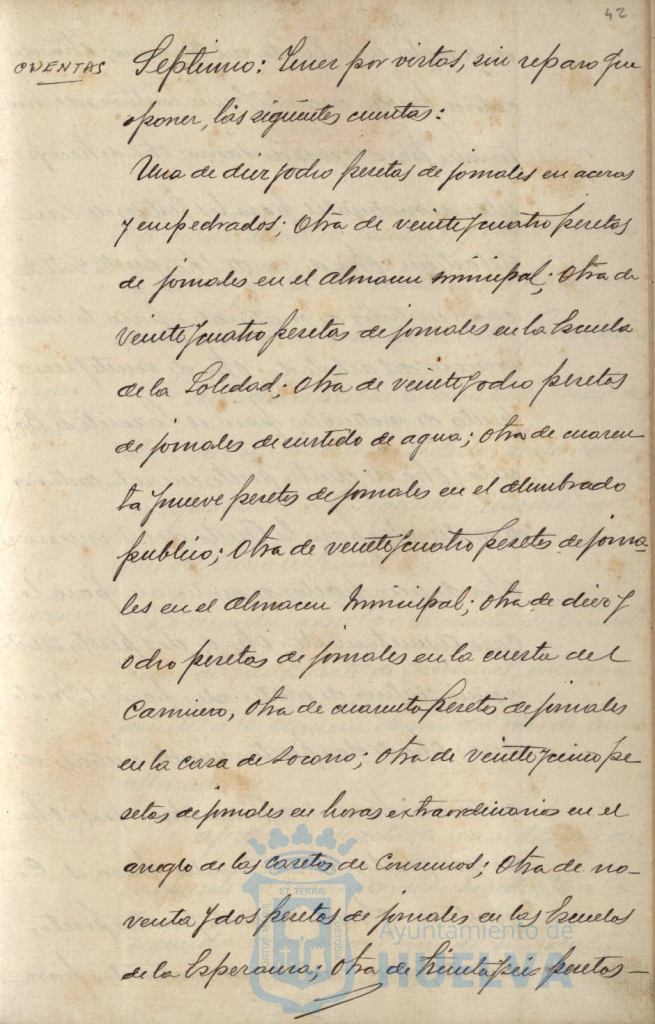 42
CUENTAS
Septimo: Tener por vistas, sin reparo que
oponer, las siguientes cuentas:
Una de diez y ocho pesetas de jornales en aceras
y empedrados; Otra de veinte y cuatro pesetas
de jornales en el almacen municipal; Otra de
veinte y cuatro pesetas de jornales en la Escuela
de la Soledad; Otra de veinte y ocho pesetas
de jornales de surtido de agua; Otra de cuaren
ta y nueve pesetas de jornales en el alumbrado
publico; Otra de veinte y cuatro pesetas de jorna-
les en el almacen Municipal; Otra de diez y
ocho pesetas de jornales en la cuesta del
Carnicero, Otra de cuarenta pesetas de jornales
en la casa de Socorro; Otra de veinte y cinco pe
setas de jornales en horas extraordinarias en el
arreglo de las casetas de Consumos; Otra de no-
venta y dos pesetas de jornales en las Escuelas
de la Esperanza; Otra de treinta y seis pesetas—
Ayuntamiento de
HUELVA